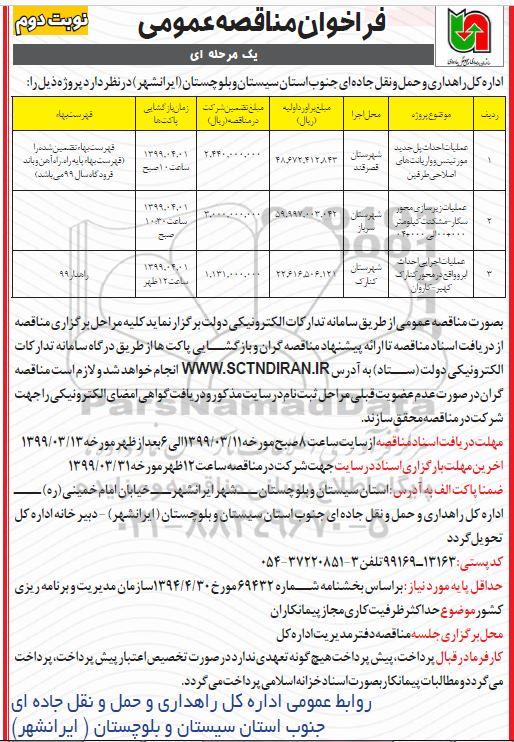 نوبت دوم
فراخوان مناقصه عمومی
یک مرحله ای
اداره کل راهداری و حمل و نقل جاده ای جنوب استان سیستان و بلوچستان (ایرانشهر) در نظر دارد پروژه ذیل را:
ردیف موضوع پروژه محل اجرا مبلغ برآورد اولیه (ریال) مبلغ تضمین شرکت در مناقصه (ریال) زمان بازگشایی پاکت ها فهرست بهاء
۱ عملیات احداث پل جدید مورتیتس و واریانت های اصلاحی طرفین شهرستان قصرقند ۴۸،۶۷۲،۴۱۲،۸۴۳ ۲،۴۴۰،۰۰۰،۰۰۰ ۱۳۹۹،۰۴،۰۱ ساعت ۱۰ صبح فهرست بهاء تضمین شده را (فهرست بهاء پایه راه، راه آهن و باند فرودگاه سال ۹۹ می باشد)
۲ عملیات زیرسازی محور سگار-مشکنت کیلومتر ۰۰۰+۰۰ الی ۰۰۰+۰۴ شهرستان سرباز ۵۹،۹۹۷،۰۰۳،۰۴۲ ۳،۰۰۰،۰۰۰،۰۰۰ ۱۳۹۹،۰۴،۰۱ ساعت ۱۰:۳۰ صبح
۳ عملیات اجرایی احداث ابرو واقع در محور کنارک کهیر-کاروان شهرستان کنارک ۲۲،۶۱۶،۵۰۶،۱۲۱ ۱،۱۳۱،۰۰۰،۰۰۰ ۱۳۹۹،۰۴،۰۱ ساعت ۱۲ ظهر راهدار ۹۹
بصورت مناقصه عمومی از طریق سامانه تدارکات الکترونیکی دولت برگزار نماید کلیه مراحل برگزاری مناقصه
از دریافت اسناد مناقصه تا ارائه پیشنهاد مناقصه گران و بازگشــایی پاکت ها از طریق درگاه سامانه تدارکات
الکترونیکی دولت (ستــاد) به آدرس WWW.SCTNDIRAN.IR انجام خواهد شد و لازم است مناقصه
گران در صورت عدم عضویت قبلی مراحل ثبت نام در سایت مذکور و دریافت گواهی امضای الکترونیکی را جهت
شرکت در مناقصه محقق سازند.
مهلت دریافت اسناد مناقصه از سایت ساعت ۸ صبح مورخه ۱۳۹۹/۰۳/۱۱ الی ۶ بعد از ظهر مورخه ۱۳۹۹/۰۳/۱۳
آخرین مهلت بارگزاری اسناد در سایت جهت شرکت در مناقصه ساعت ۱۲ ظهر مورخه ۱۳۹۹/۰۳/۳۱
ضمنا پاکت الف به آدرس: استان سیستان و بلوچستان ــ شهر ایرانشهر ــ خیابان امام خمینی (ره) ــ
اداره کل راهداری و حمل و نقل جاده ای جنوب استان سیستان و بلوچستان (ایرانشهر) - دبیرخانه اداره کل
تحویل گردد
کد پستی: ۱۳۱۶۳ــ۹۹۱۶۹ تلفن ۳-۳۷۲۲۰۸۵۱-۰۵۴
حداقل پایه مورد نیاز: بر اساس بخشنامه شــماره ۶۹۴۳۲ مورخ ۱۳۹۴/۴/۳۰ سازمان مدیریت و برنامه ریزی
کشور موضوع حداکثر ظرفیت کاری مجاز پیمانکاران
محل برگزاری جلسه مناقصه دفتر مدیریت اداره کل
کارفرما در قبال پرداخت، پیش پرداخت هیچ گونه تعهدی ندارد در صورت تخصیص اعتبار پیش پرداخت، پرداخت
می گردد و مطالبات پیمانکار بصورت اسناد خزانه اسلامی پرداخت می گردد.
روابط عمومی اداره کل راهداری و حمل و نقل جاده ای
جنوب استان سیستان و بلوچستان ( ایرانشهر)
ParsNamadData
۰۲۱-۸۸۳۴۹۶۷۰-۵